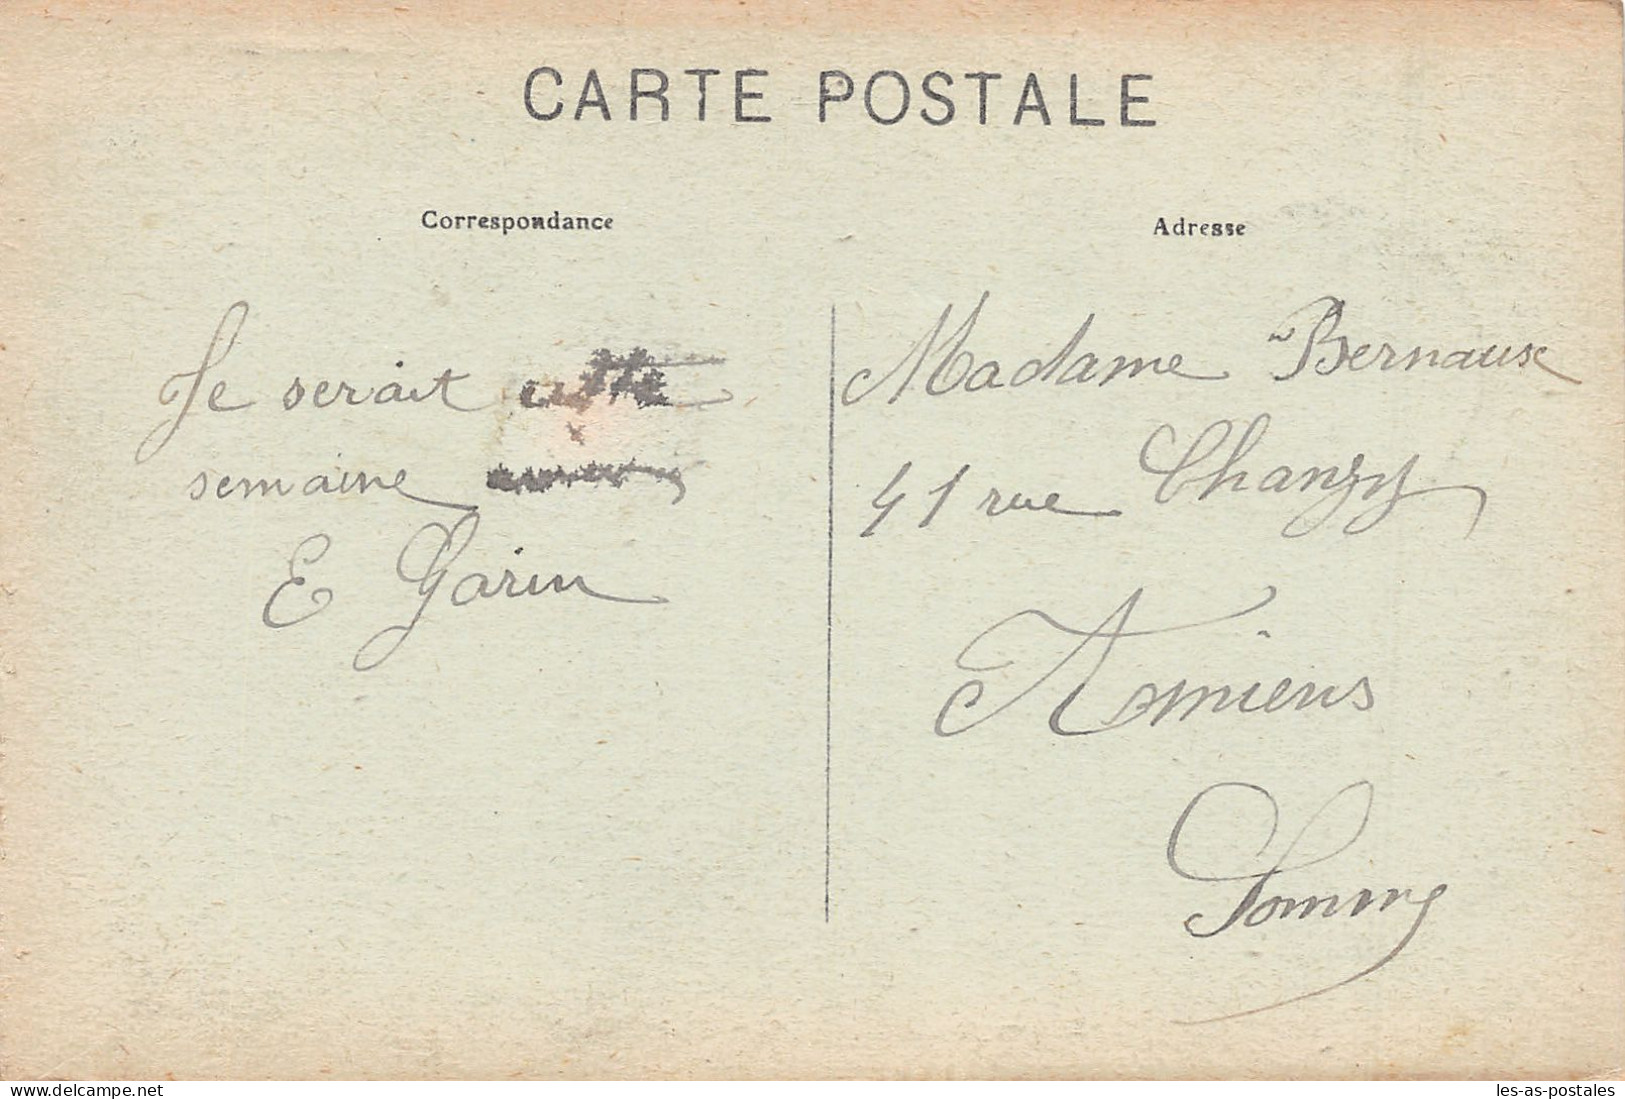 CARTE POSTALE
Correspondance
Je serait cette
semaine
E Garin
Adresse
Madame Bernause
41 rue Chanzy
Amiens
Somme
www.delcampe.net
les-as-postales